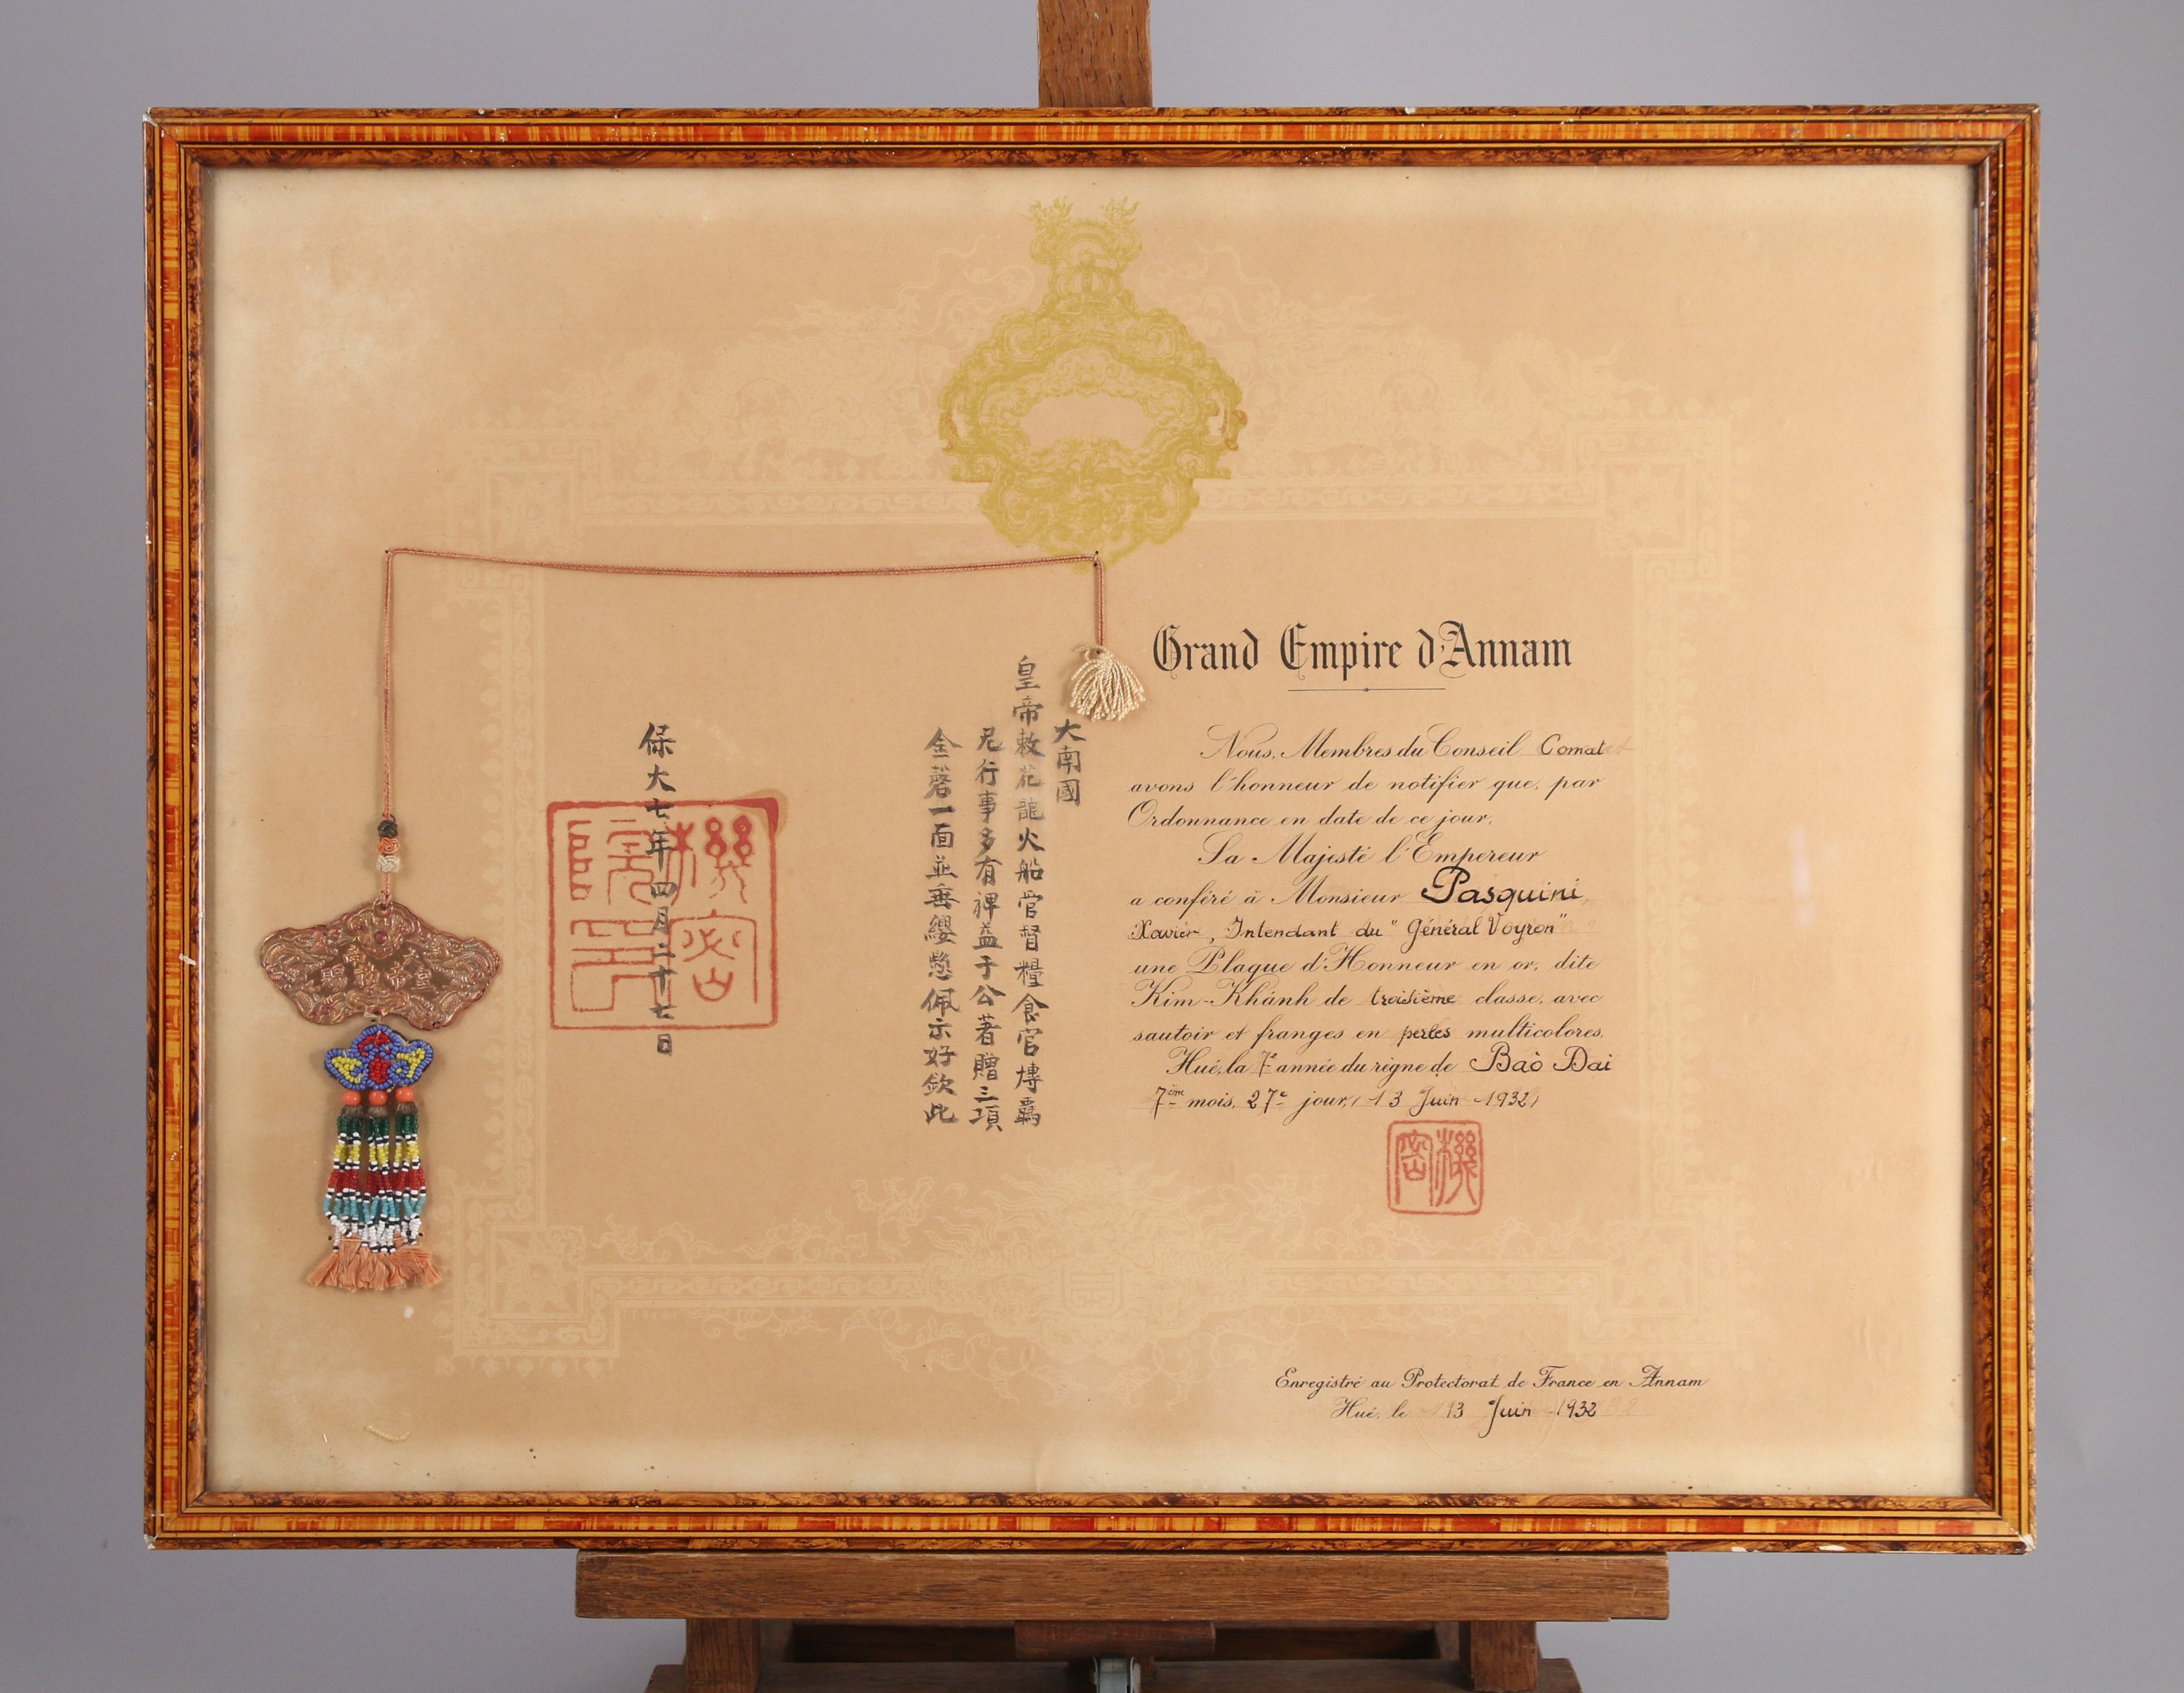 Grand Empire d'Annam
Nous, Membres du Conseil Comat
avons l'honneur de notifier que, par
Ordonnance en date de ce jour,
Sa Majesté l'Empereur
a conféré à Monsieur Pasquini,
Xavier, Intendant du "Général Voyron"
une Plaque d'Honneur en or, dite
Kim-Khánh de troisième classe, avec
sautoir et franges en perles multicolores.
Hué, la 7e année du règne de Baò Dai
7ème mois, 27e jour, (13 Juin 1932)
機密
Enregistré au Protectorat de France en Annam
Hué, le 13 Juin 1932
大南國
皇帝敕花龍火船管督糧食官博羁
凢行事多有裨益于公著贈三項
金磬一面並垂纓懸佩示好欽此
保大七年四月二十七日
機密院印